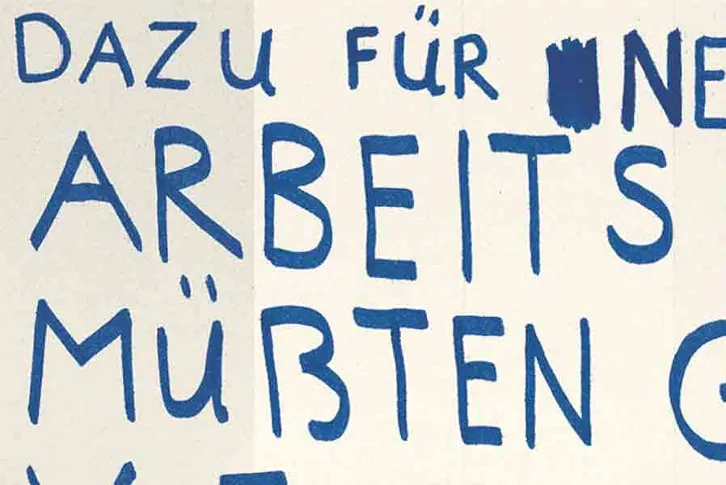 DAZU FÜR
ARBEITS
MÜßTEN G